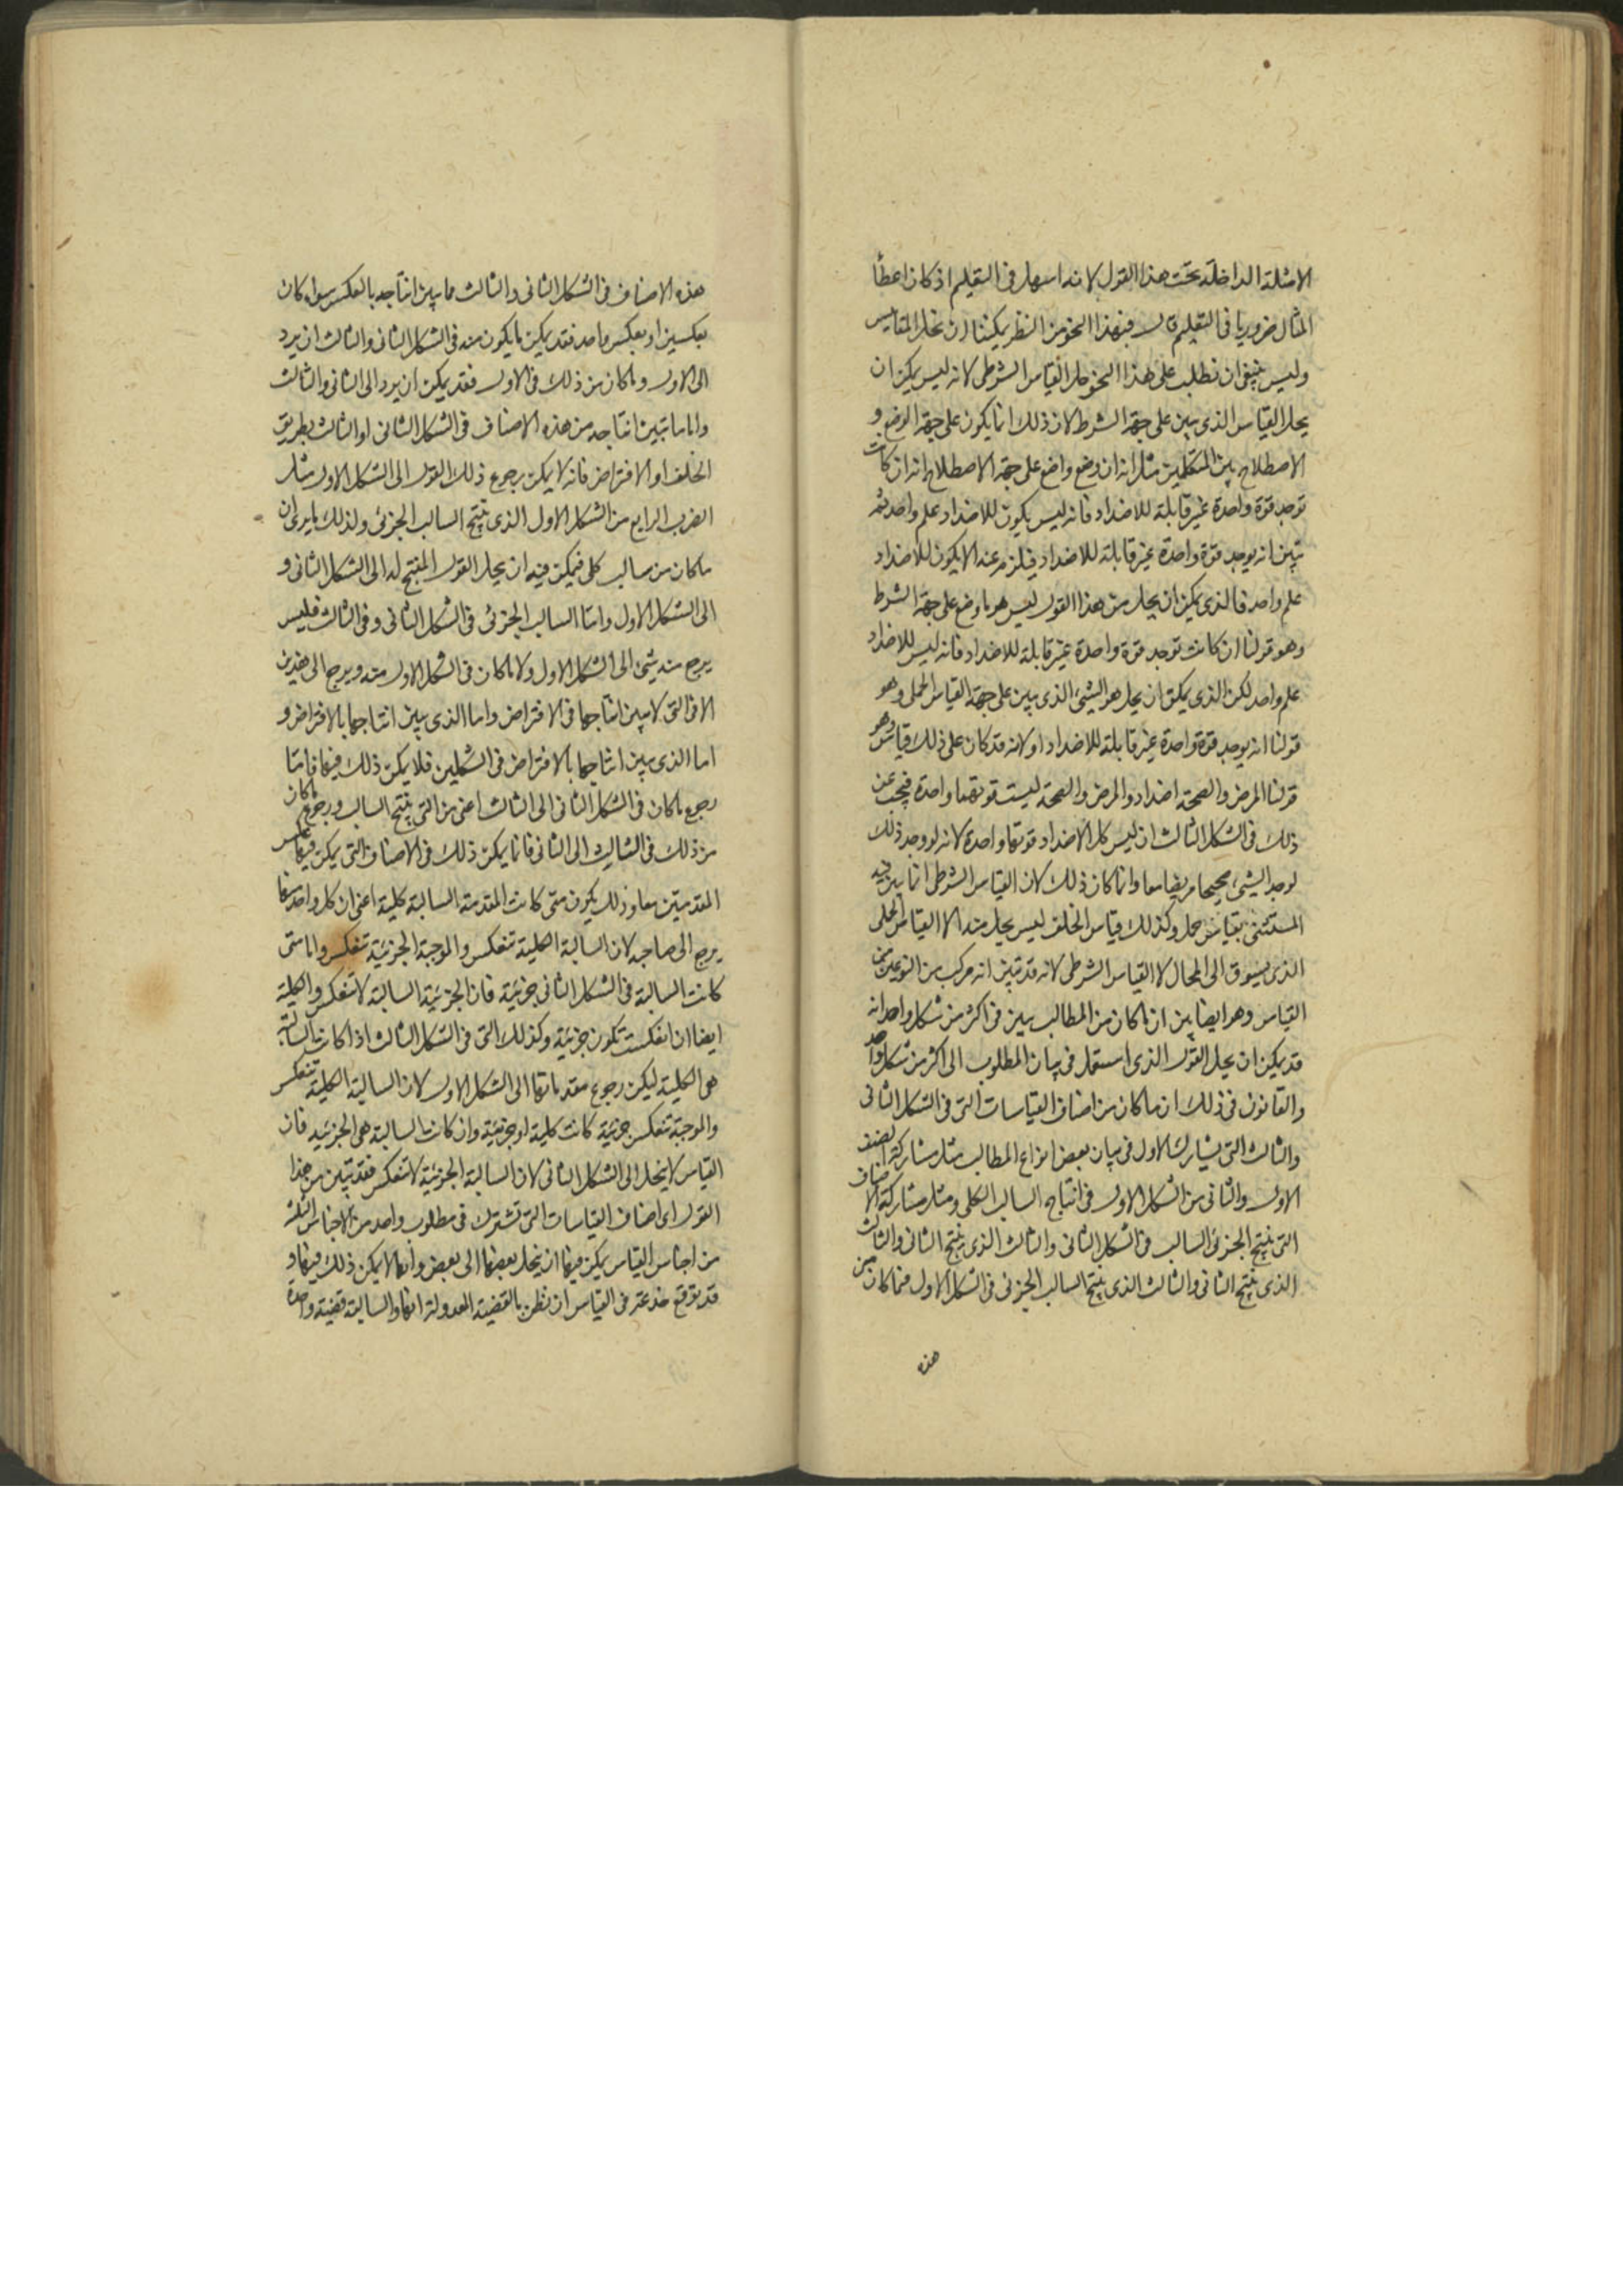 الامثلة الداخلة تحت هذا القول لانه اسهل فى التعليم اذ كان اعطأ
المثال ضروريا فى التعليم قال فبهذا النحو من النظر يمكننا ان نحل المقاييس
وليس ينبغى ان نطلب على هذا النحو حل القياس الشرطى لانه ليس يمكن ان
يحل القياس الذى يبين على جهة الشرط لان ذلك انما يكون على جهة الوضع و
الاصطلاح بين المتكلمين مثل انه ان وضع واضع على جهة الاصطلاح انه ان كانت
توجد قوة واحدة غير قابلة للاضداد فانه ليس يكون للاضداد علم واحد ثم
تبين انه يوجد قوة واحدة غير قابلة للاضداد فيلزم عنه الا يكون للاضداد
علم واحد فالذى يمكن ان يحل من هذا القول ليس هو ما وضع على جهة الشرط
وهو قولنا ان كانت توجد قوة واحدة غير قابلة للاضداد فانه ليس للاضداد
علم واحد لكن الذى يمكن ان يحل هو الشىء الذى يبين على جهة القياس الحملى وهو
قولنا انه يوجد قوة واحدة غير قابلة للاضداد او لانه قد كان على ذلك قياس وهو
قولنا المرض والصحة اضداد والمرض والصحة ليست قوتهما واحدة فيجب عن
ذلك فى الشكل الثالث ان ليس كل الاضداد قوتها واحدة لانه لو وجد ذلك
لوجد الشىء صحيحا مريضا معا وانما كان ذلك لان القياس الشرطى انما يبين فيه
المستثنى بقياس حملى وكذلك قياس الخلف ليس يحل منه الا القياس الحملى
الذى يسوق الى المحال لا القياس الشرطى لانه قد تبين انه مركب من النوعين من
القياس وهو ايضا بين ان ما كان من المطالب يبين فى اكثر من شكل واحد انه
قد يمكن ان يحل القول الذى استعمل فى بيان المطلوب الى اكثر من شكل واحد
والقانون فى ذلك ان ما كان من اصناف القياسات التى فى الشكل الثانى
والثالث التى تشارك الاول فى بيان بعض انواع المطالب مثل مشاركة الصنف
الاول والثانى من الشكل الاول فى انتاج السالب الكلى ومثل مشاركة الاصناف
التى ينتج الجزئى السالب فى الشكل الثانى والثالث الذى ينتج الثانى والثالث
الذى ينتج الثانى والثالث الذى ينتج السالب الجزئى فى الشكل الاول فما كان من
هذه
هذه الاصناف فى الشكل الثانى والثالث مما يبين انتاجه بالعكس سواء كان
بعكسين او بعكس واحد فقد يمكن ما يكون منه فى الشكل الثانى والثالث ان يرد
الى الاول وما كان من ذلك فى الاول فقد يمكن ان يرد الى الثانى والثالث
واما ما تبين انتاجه من هذه الاصناف فى الشكل الثانى او الثالث بطريق
الخلف او الافتراض فانه لا يمكن رجوع ذلك القول الى الشكل الاول مثل
الضرب الرابع من الشكل الاول الذى ينتج السالب الجزئى ولذلك ما يرى ان
ما كان من سالب كلى فيمكن فيه ان يحل القول المنتج له الى الشكل الثانى و
الى الشكل الاول واما السالب الجزئى فى الشكل الثانى وفى الثالث فليس
يرجع منه شئ الى الشكل الاول ولا ما كان فى الشكل الاول منه ويرجع الى هذين
الا فى التى لا يبين انتاجها فى الافتراض واما الذى يبين انتاجها بالافتراض و
اما الذى يبين انتاجها بالافتراض فى الشكلين فلا يمكن ذلك فيها فاما
رجوع ما كان فى الشكل الثانى الى الثالث اعنى من التى ينتج السالب ورجوع ما كان
من ذلك فى الثالث الى الثانى فانما يمكن ذلك فى الاصناف التى يمكن فيها عكس
المقدمتين معا وذلك يكون متى كانت المقدمة السالبة كلية اعنى ان كل واحد منها
يرجع الى صاحبه لان السالبة الكلية تنعكس والموجبة الجزئية تنعكس واما متى
كانت السالبة فى الشكل الثانى جزئية فان الجزئية السالبة لا تنعكس والكلية
ايضا ان انعكست تكون جزئية وكذلك التى فى الشكل الثالث اذا كانت السالبة
هى الكلية ليكن رجوع مقدماتها الى الشكل الاول لان السالبة الكلية تنعكس
والموجبة تنعكس جزئية كانت كلية او جزئية وان كانت السالبة هى الجزئية فان
القياس لا ينحل الى الشكل الثانى لان السالبة الجزئية لا تنعكس فقد تبين من هذا
القول اى اصناف القياسات التى تشترك فى مطلوب واحد من الاجناس الثلثة
من اجناس القياس يمكن فيها ان ينحل بعضها الى بعض وايها لا يمكن ذلك فيها و
قد توقع خدعة فى القياس ان نظن بالقضية المعدولة انها والسالبة قضية واحدة